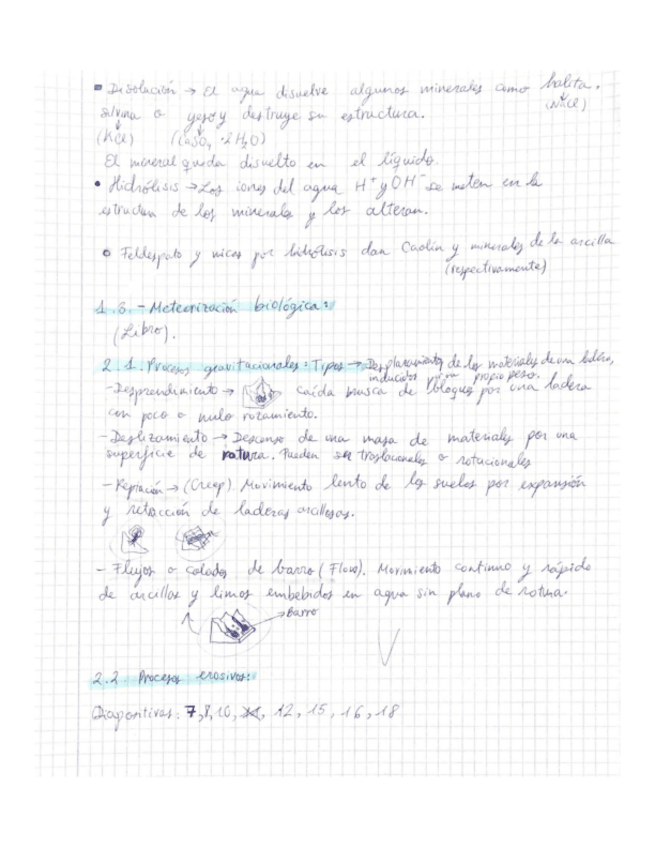 Disolución → El agua disuelve algunos minerales como halita,
(NaCl)
silvina o yeso y destruye su estructura.
(KCl) (CaSO4 · 2H2O)
El mineral queda disuelto en el líquido.
• Hidrólisis → Los iones del agua H+ y OH- se meten en la
estructura de los minerales y los alteran.
• Feldespato y micas por hidrólisis dan Caolín y minerales de la arcilla
(respectivamente)
1.3.- Meteorización biológica:
(Libro).
2.1. Procesos gravitacionales: Tipos → Desplazamientos de los materiales de una ladera,
inducidos por su propio peso.
- Desprendimiento → caída brusca de bloques por una ladera
con poco o nulo rozamiento.
- Deslizamiento → Descenso de una masa de materiales por una
superficie de rotura. Pueden ser traslacionales o rotacionales
- Reptación → (Creep). Movimiento lento de los suelos por expansión
y retracción de laderas arcillosas.
- Flujos o coladas de barro (Flow). Movimiento continuo y rápido
de arcillas y limos embebidos en agua sin plano de rotura.
→ Barro
2.2. Procesos erosivos:
Diapositivas: 7, 8, 10, 12, 15, 16, 18